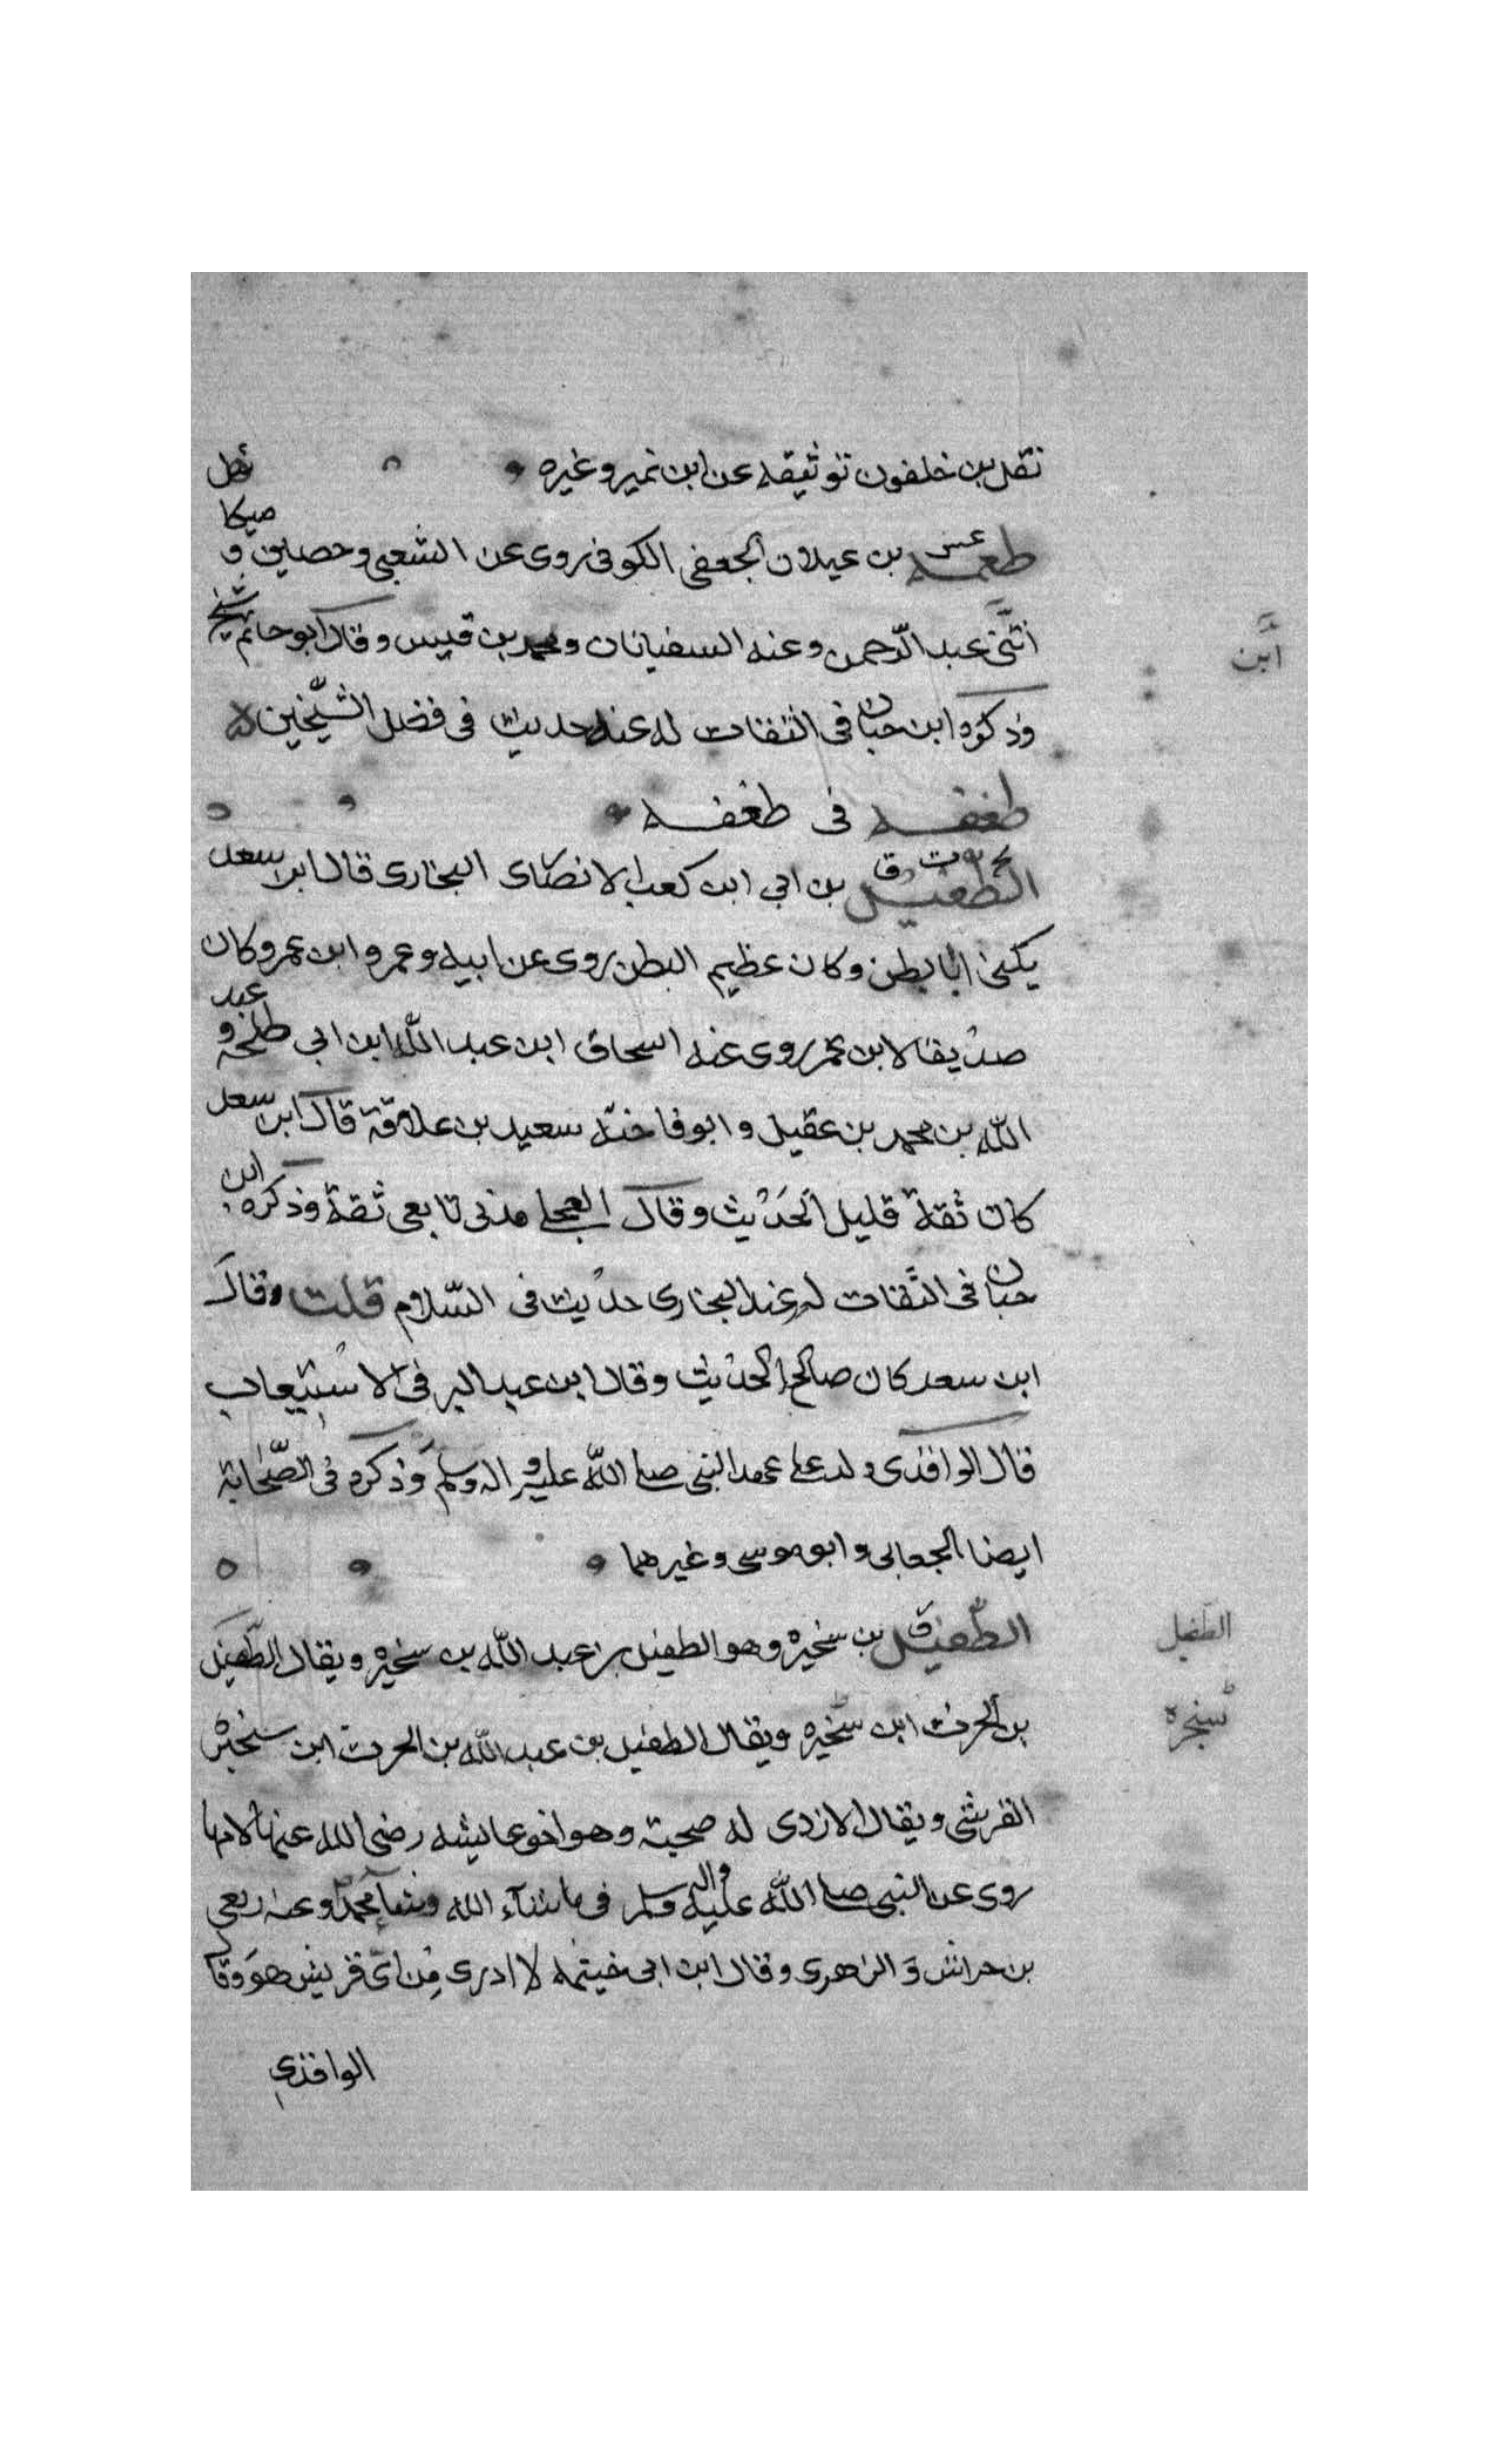 نقل بن خلفون توثيقه عن ابن نمير وغيره
طعمه عس بن عيلان الجعفى الكوفى روى عن الشعبى وحصين و ميكا
ئيل
ابنى عبد الرّحمن وعنه السفيانان ومحمد بن قيس وقال ابو حاتم شيخ
ابن
وذكره ابن حبان فى الثقات له عنده حديث فى فضل الشّيخين
طغفه فى طخفه
الطفيل بخ ت ق بن ابى ابن كعب الانصارى البخارى قال ابن سعد
يكنى ابا بطن وكان عظيم البطن روى عن ابيه وعمر وابن عمر وكان
صديقا لابن عمر روى عنه اسحاق ابن عبد اللّه ابن ابى طلحة و عبد
اللّه بن محمد بن عقيل وابو فاختة سعيد بن علاقة قال ابن سعد
كان ثقة قليل الحديث وقال العجلى مدنى تابعى ثقة وذكره ابن
حبان فى الثّقات له عند البخارى حديث فى السّلام قلت وقال
ابن سعد كان صالح الحديث وقال ابن عبد البر فى الاستيعاب
قال الواقدى ولد على عهد النبى صلى اللّه عليه واله وسلم وذكره فى الصّحابة
ايضا الجعابى وابو موسى وغيرهما
الطّفيل ق بن سخيره وهو الطفيل بن عبد اللّه بن سخيره ويقال الطّفيل
الطفيل
بن الحرث ابن سخيره ويقال الطفيل بن عبد اللّه بن الحرث ابن سخيره
سنجرة
القرشى ويقال الازدى له صحبة وهو اخو عايشه رضى الله عنها لامها
روى عن النبى صلى اللّه عليه واله وسلم فى ما شآء الله وشآء محمد وعنه ربعى
بن حراش و الزهرى وقال ابن ابى خيثمه لا ادرى من اى قريش هو وقال
الواقدى